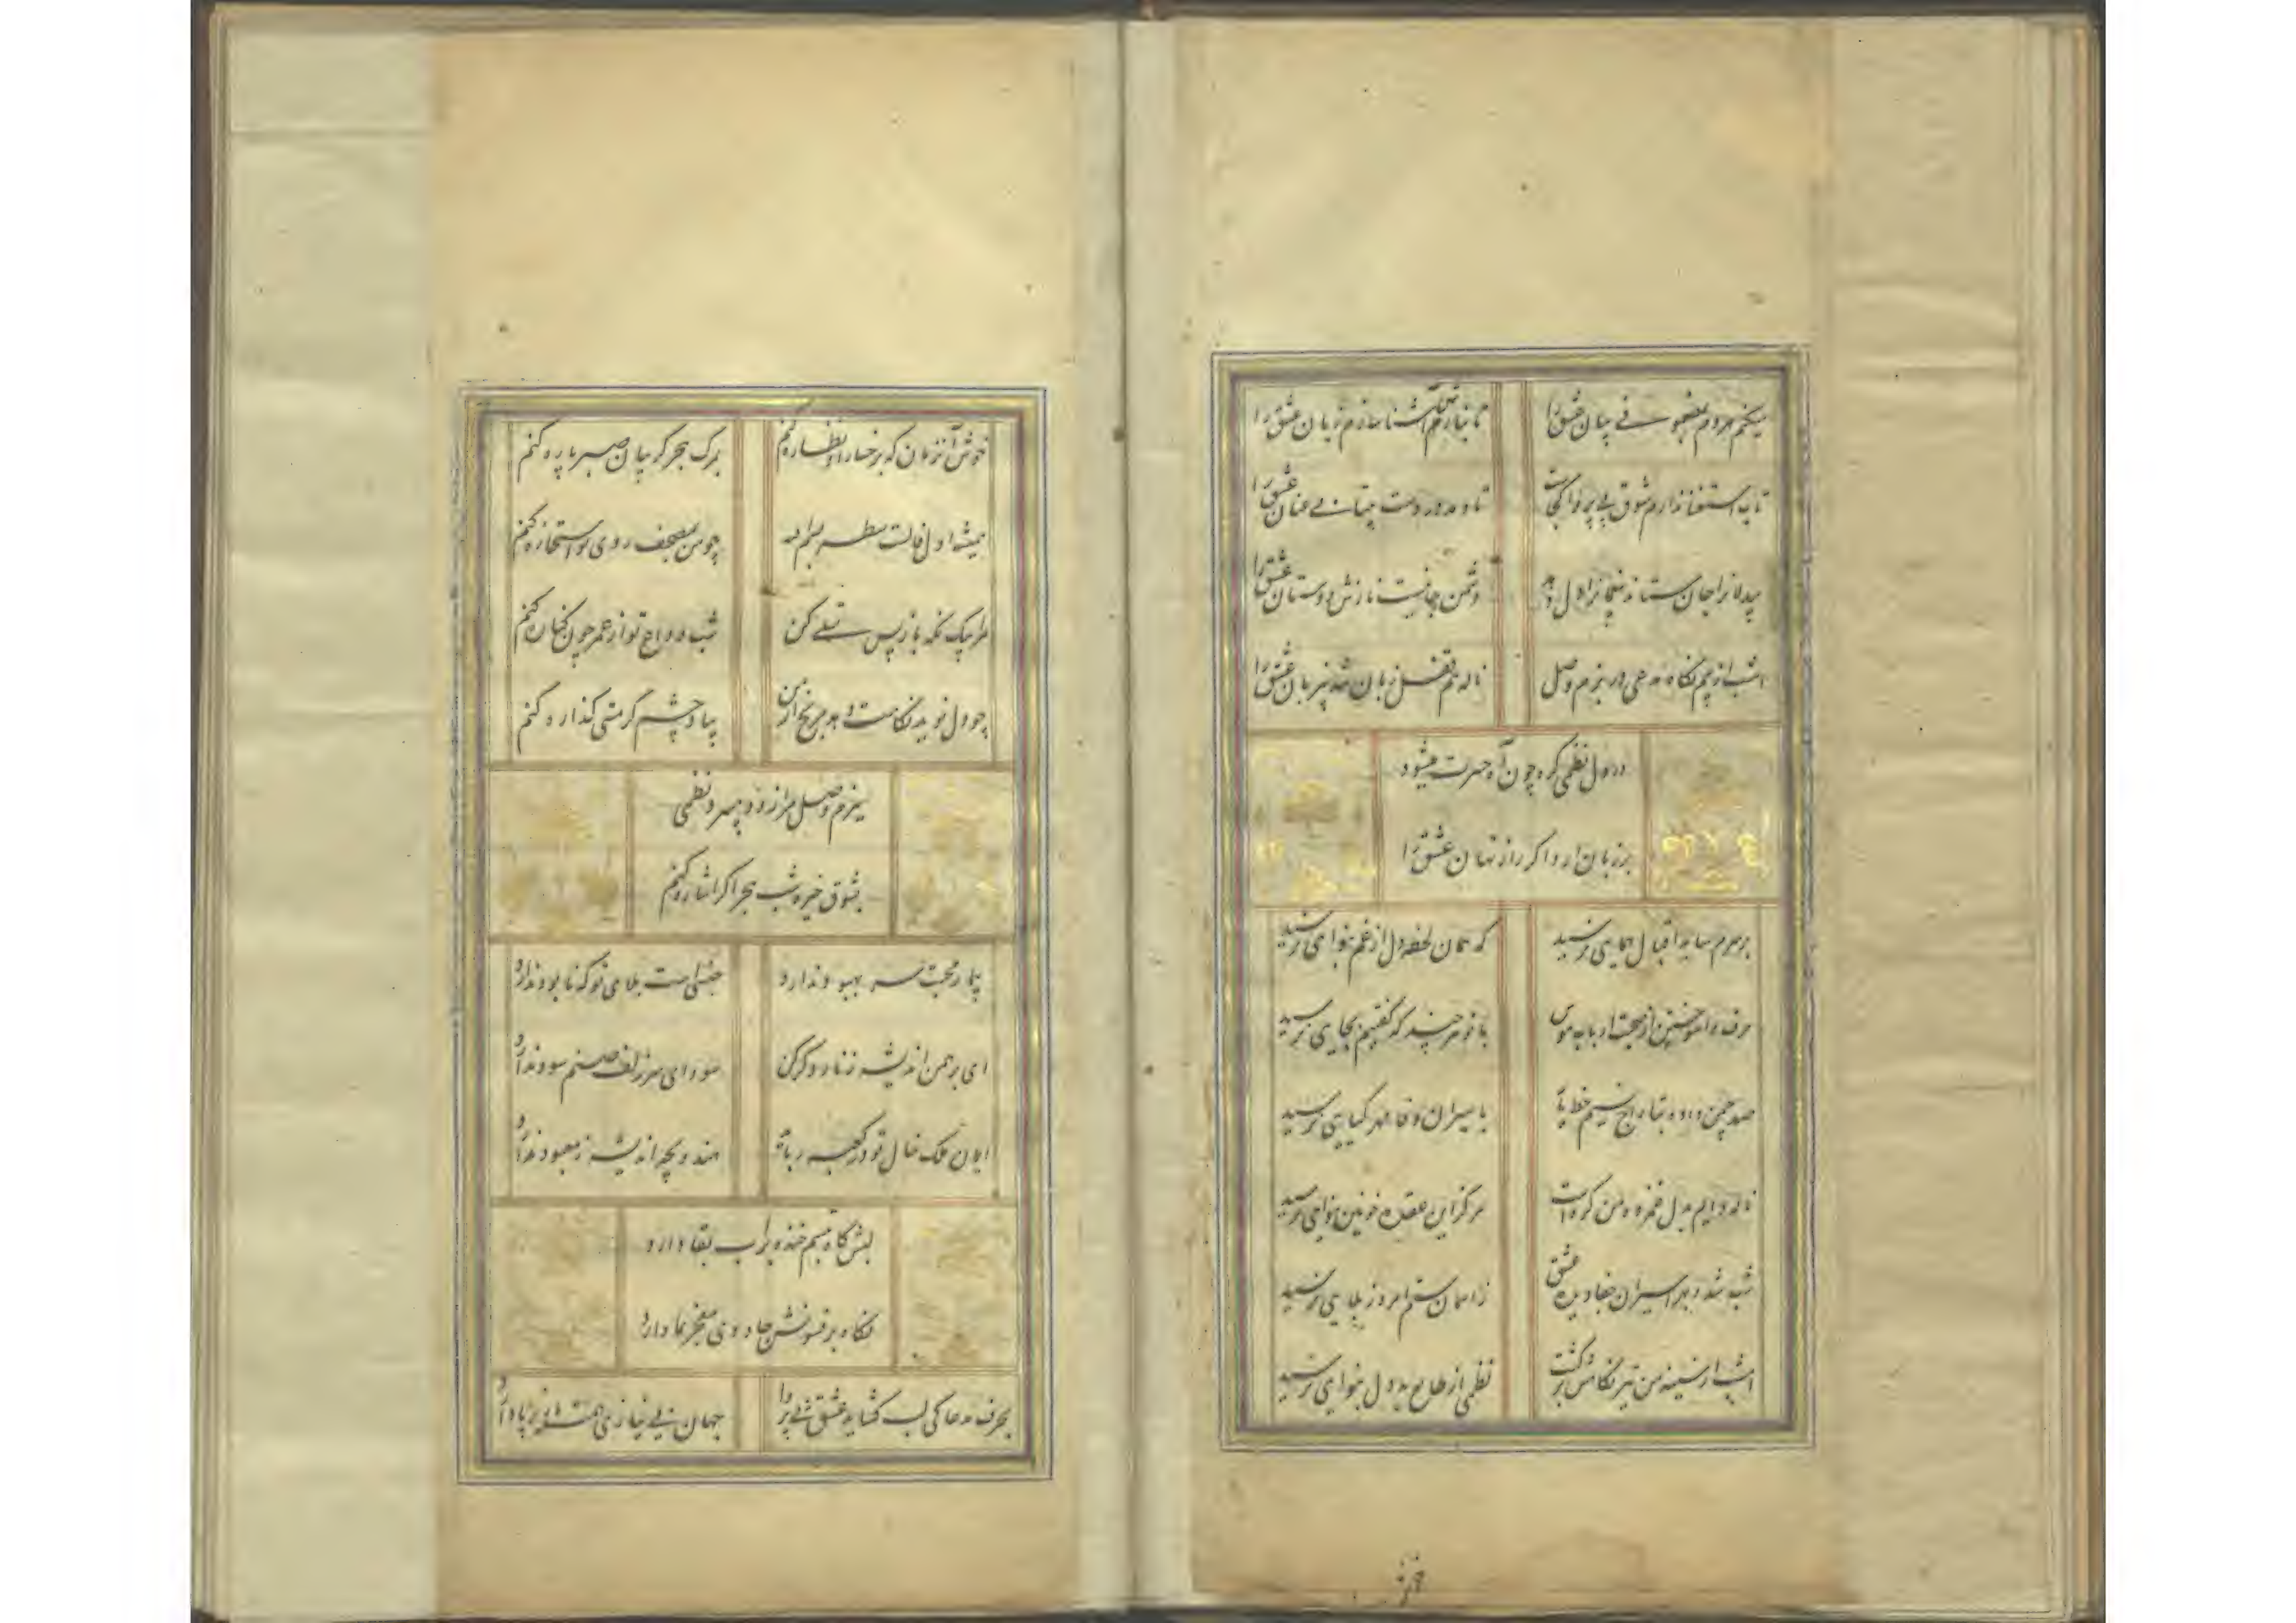 میکنم هر دم بمضمونے بیان عشق را
تا نیازم آشنا سازم زبان عشق را
تاب استغنا ندارم شوق بی پروا کجاست
تا دهد در دست بیتابے عنان عشق را
بیدلانرا جان ستاند بیخبر را دل دهد
دشمن جانیست نازش دوستان عشق را
امشب از بیم نگاه مدعی در بزم وصل
ناله ام قفل زبان شد بر زبان عشق را
در دل نظمی گره چون آه حسرت میشود
بر زبان ارد اگر راز نهان عشق را
بر سرم سایه اقبال همایی نرسید
که همان لحظه دل از غم بنوایی نرسید
حرف ما سوختن از صحبت ارباب هوس
با تو هر چند که گفتیم بجایی نرسید
صد چمن داده بتاراج نسیم خط یار
با سیران وفا مهر گیایی نرسید
ناله دایم بدل غمزده من گره است
هرگز این عقده خونین بنوایی نرسید
شب شد و بهر اسیران جفا دیده عشق
ز آسمان ستم امروز بلایی نرسید
امشب از سینه من تیر نگاهش برگشت
نظمی از طالع بد دل بنوایی نرسید
خوش آنزمان که برخسار او نظاره کنم
بمرگ هجر گریبان صبر پاره کنم
همیشه اول فالت سطر
چو من بمصحف روی تو استخاره کنم
مرا بیک نگه بازپس تسلے کن
شب وداع تو از عمر چون کنان کنم
چو دل نوید نگاهت دهد مرنج از من
بیاد چشم تو گر مستی گذاره کنم
ببزم وصل مرا زود میبرد نظمی
بشوق خیره شب هجر اگر اشاره کنم
بیمار محبت سر بهبود ندارد
جنسی است بلای تو که نابود ندارد
ای برهمن اندیشه زنار دگر کن
سودای سر زلف صنم سود ندارد
ایمان ملک خال تو در کعبه رباید
هندو بچه اندیشه ز معبود ندارد
لبش گاه تبسم خنده بر آب بقا دارد
نگاه پر فسونش جادوی معجز نما دارد
بحرف مدعا کی لب گشاید عشق بی پروا
جهان بے نیازی همت